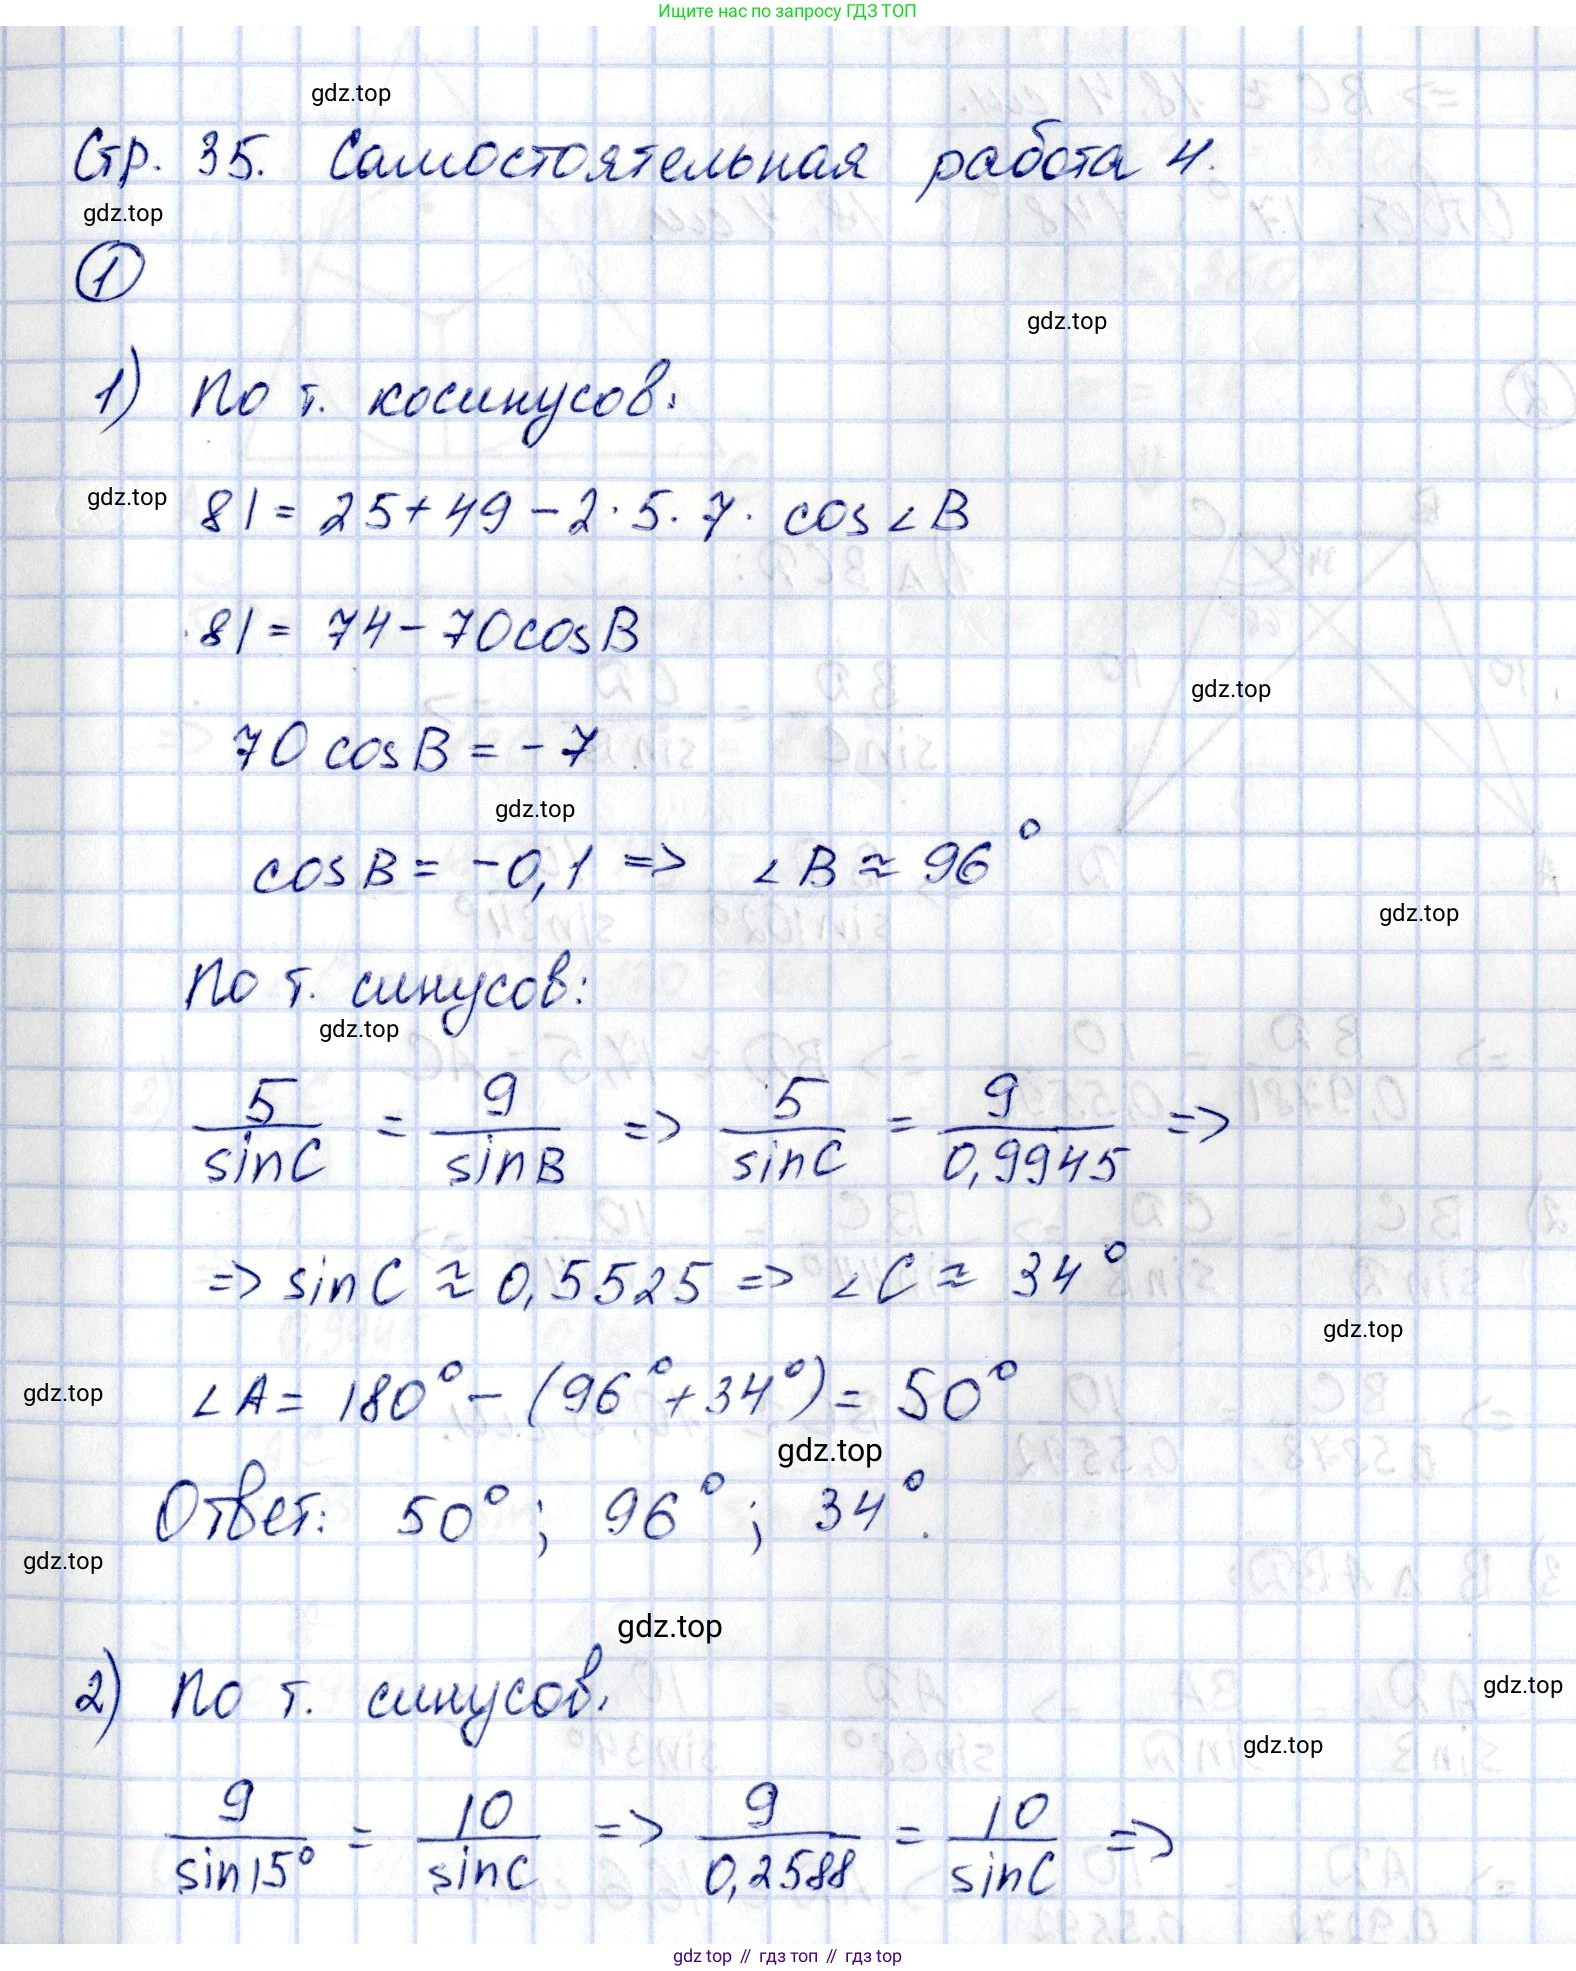 Ищите нас по запросу ГДЗ ТОП
gdz.top
Стр. 35. Самостоятельная работа 4.
gdz.top
1
gdz.top
1) По т. косинусов:
gdz.top
81 = 25 + 49 - 2 · 5 · 7 · cos ∠B
81 = 74 - 70cosB
gdz.top
70 cosB = -7
gdz.top
cosB = -0,1 => ∠B ≈ 96°
gdz.top
По т. синусов:
gdz.top
5/sinC = 9/sinB => 5/sinC = 9/0,9945 =>
=> sinC ≈ 0,5525 => ∠C ≈ 34°
gdz.top
gdz.top
∠A = 180° - (96° + 34°) = 50°
gdz.top
Ответ: 50°; 96°; 34°.
gdz.top
gdz.top
2) По т. синусов.
gdz.top
gdz.top
9/sin15° = 10/sinC => 9/0,2588 = 10/sinC =>
gdz top // гдз топ // гдз top